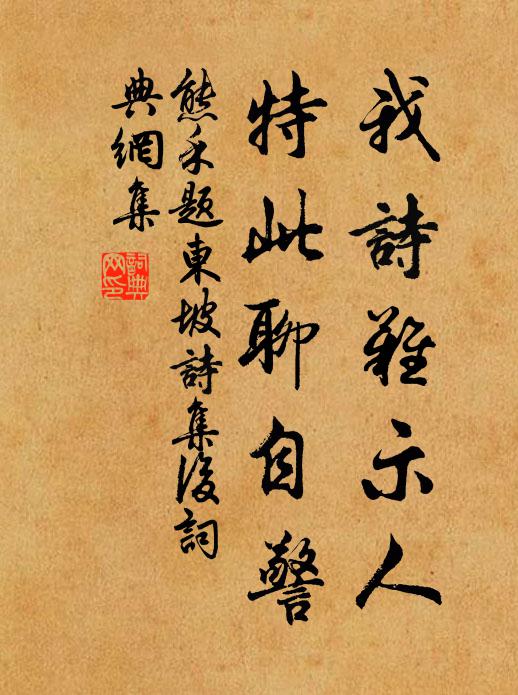 我詩難示人
特此聊自警
熊禾題東坡詩集後詞
典網集
詞典網印